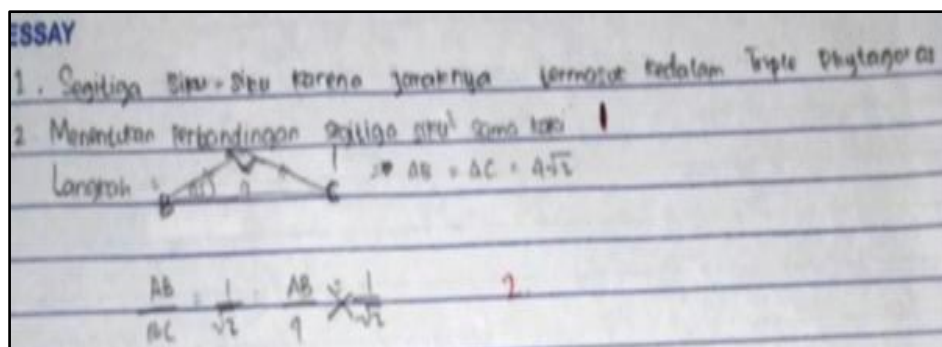 ESSAY
1. Segitiga siku-siku karena jaraknya termasuk kedalam Triple Phytagoras
2 Menentukan Perbandingan segitiga siku² sama kaki 1
Langkah :
B 9 C
⇒ AB = AC = 9√2
AB/BC = 1/√2 = AB/9 1/√2
2.